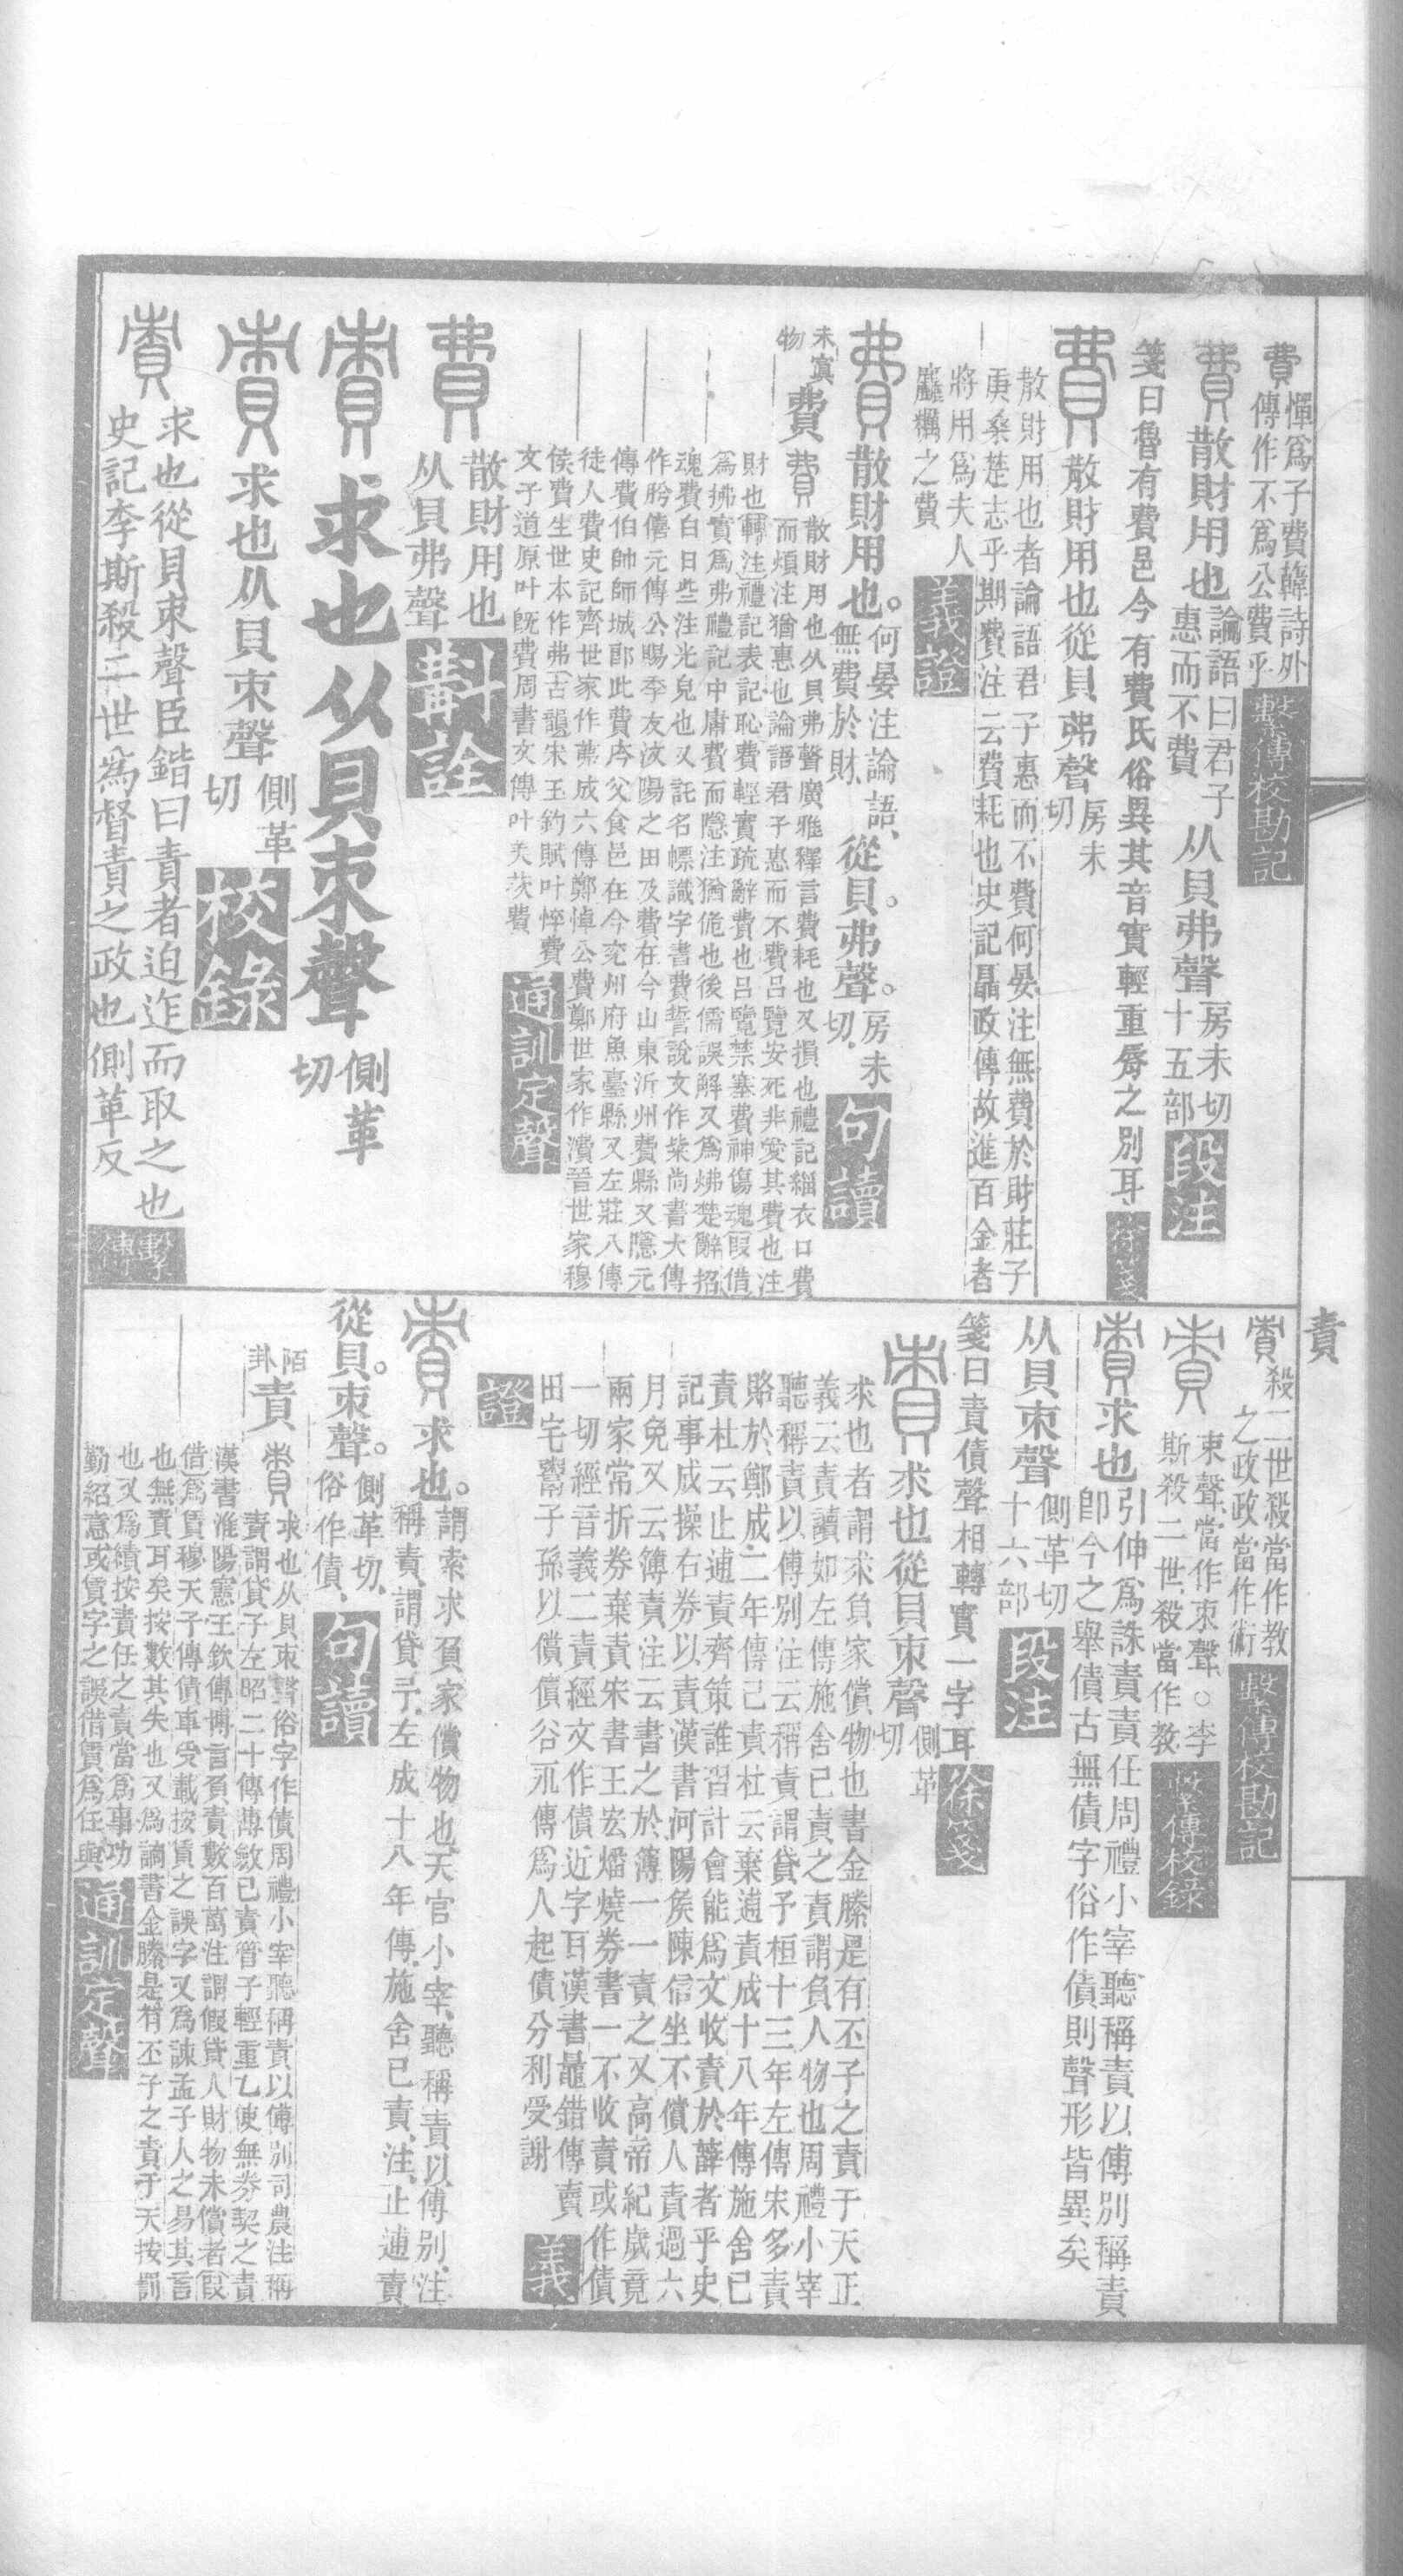 費
惲爲子費韓詩外
傳作不爲公費乎
繫傳校勘記
費
散財用也
論語曰君子
惠而不費
从貝弗聲
房未切
十五部
段注
箋曰魯有費邑今有費氏俗異其音實輕重脣之別耳
徐箋
費
散財用也從貝弗聲
房未
切
散財用也者論語君子惠而不費何晏注無費於財莊子
庚桑楚志乎期費注云費耗也史記聶政傳故進百金者
將用爲夫人
麤糲之費
義證
費
散財用也。
何晏注論語、
無費於財、
從貝。弗聲。
房未
切、
句讀
未
物
寘
費
費
散財用也从貝弗聲廣雅釋言費耗也又損也禮記緇衣口費
而煩注猶惠也論語君子惠而不費呂覽安死非愛其費也注
財也轉注禮記表記恥費輕實疏辭費也呂覽禁塞費神傷魂叚借
爲拂實爲弗禮記中庸費而隱注猶佹也後儒誤解又爲㷟楚辭招
魂費白日些注光皃也又託名幖識字書費誓說文作粊尚書大傳
作肹僖元傳公賜季友汶陽之田及費在今山東沂州費縣又隱元
傳費伯帥師城郎此費庈父食邑在今兖州府魚臺縣又左莊八傳
徒人費史記齊世家作茀成六傳鄭悼公費鄭世家作㵒晉世家穆
侯費生世本作弗古韻宋玉釣賦叶悴費
文子道原叶旣費周書文傳叶美茨費
通訓定聲
費
散財用也
从貝弗聲
斠詮
責
求也从貝朿聲
側革
切
責
求也从貝朿聲
側革
切
校錄
責
求也從貝朿聲臣鍇曰責者迫迮而取之也
史記李斯殺二世爲督責之政也側革反
繫傳
責
責
殺二世殺當作教
之政政當作術
繫傳校勘記
責
束聲當作朿聲○李
斯殺二世殺當作教
繫傳校錄
責
求也
引伸爲誅責責任周禮小宰聽稱責以傅別稱責
卽今之舉債古無債字俗作債則聲形皆異矣
从貝朿聲
側革切
十六部
段注
箋曰責債聲相轉實一字耳
徐箋
責
求也從貝朿聲
側革
切
求也者謂求負家償物也書金縢是有丕子之責于天正
義云責讀如左傳施舍已責之責謂負人物也周禮小宰
聽稱責以傅別注云稱責謂貸予桓十三年左傳宋多責
賂於鄭成二年傳已責杜云棄逋責成十八年傳施舍已
責杜云止逋責齊策誰習計會能爲文收責於薛者乎史
記事成操右券以責漢書河陽矦陳信坐不償人責過六
月免又云簿責注云書之於簿一一責之又高帝紀歲竟
兩家常折券棄責宋書王宏燔燒券書一不收責或作債
一切經音義二責經文作債近字耳漢書鼂錯傳賣
田宅鬻子孫以償債谷永傳爲人起債分利受謝
義
證
責
求也。
謂索求負家償物也、天官小宰、聽稱責以傅別、注
稱責謂貸予、左成十八年傳、施舍已責、注、止逋責
從貝。朿聲。
側革切、
俗作債、
句讀
陌
卦
責
責
求也从貝朿聲俗字作債周禮小宰聽稱責以傅別司農注稱
責謂貸子左昭二十傳薄斂已責管子輕重乙使無券契之責
漢書淮陽憲王欽傳博言負責數百萬注謂假貸人財物未償者叚
借爲賃穆天子傳債車受載按賃之誤字又爲諫孟子人之易其言
也無責耳矣按數其失也又爲讁書金縢是有丕子之責于天按罰
也又爲績按責任之責當爲事功
勤紹意或賃字之誤借賃爲任與
通訓定聲